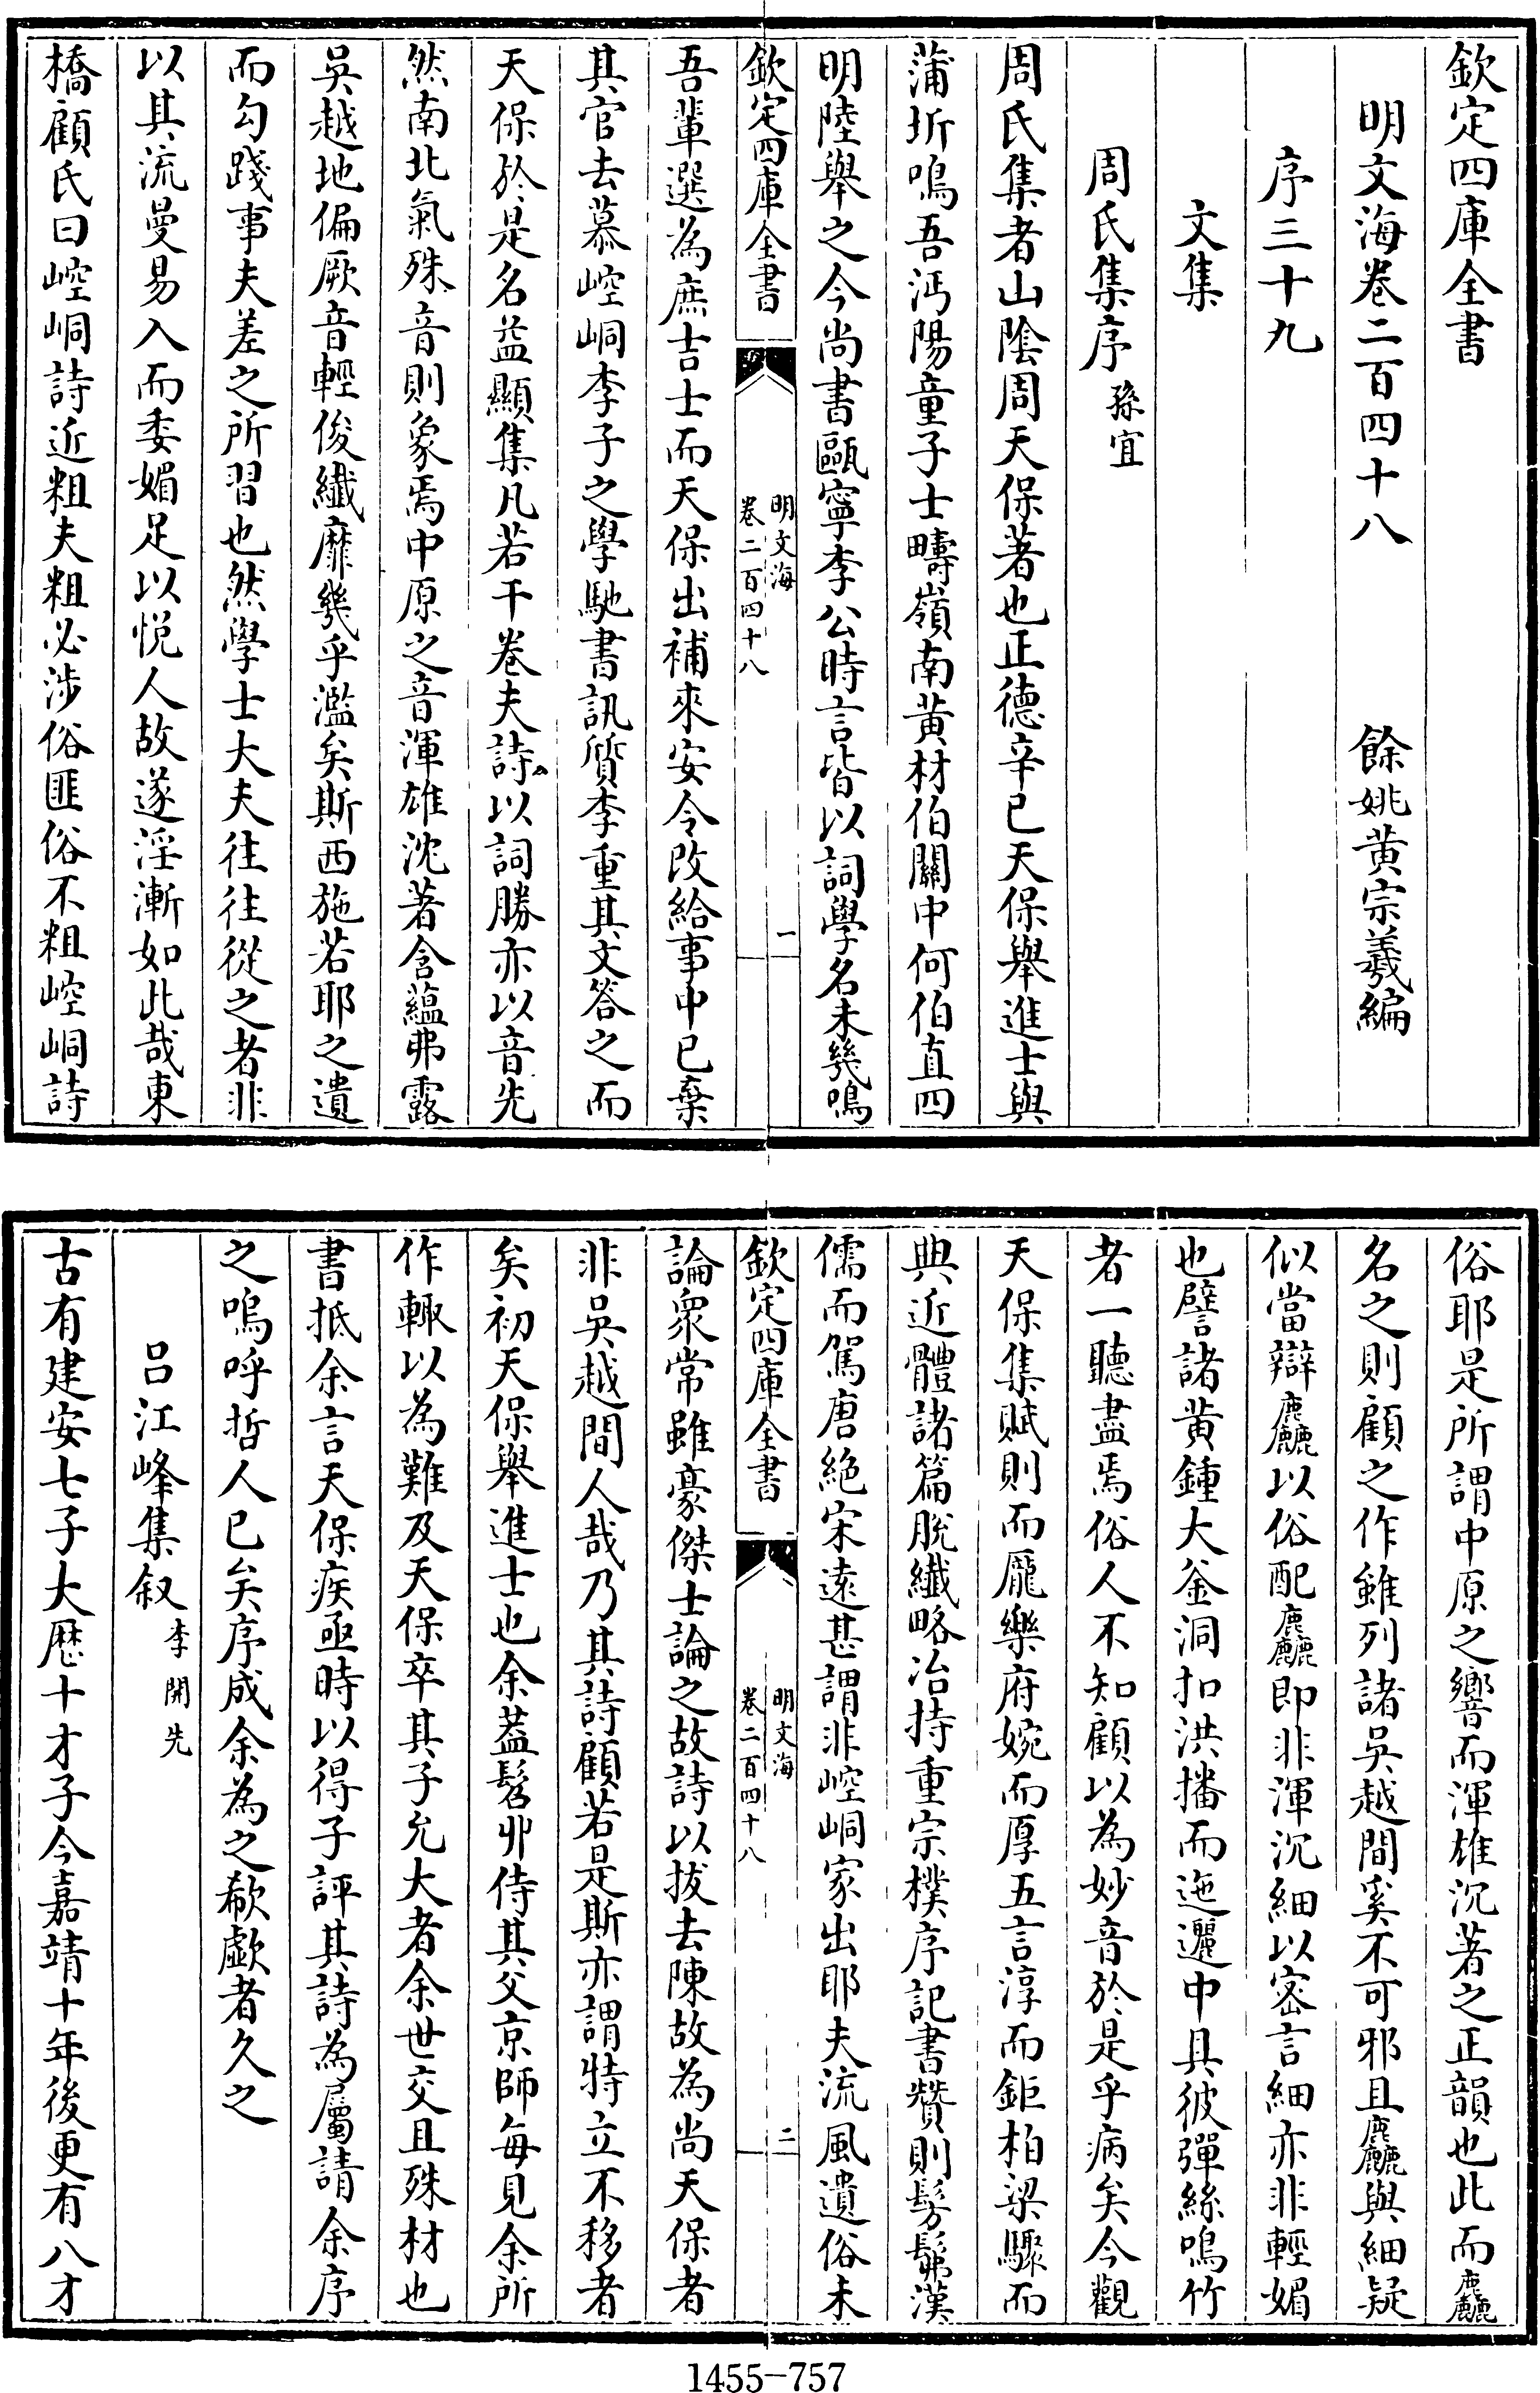 欽定四庫全書
明文海卷二百四十八　餘姚黄宗羲編
序三十九
文集
周氏集序孫宜
周氏集者山隂周天保著也正德辛已天保舉進士與
蒲圻鳴吾沔陽童子士疇嶺南黄材伯關中何伯直四
明陸舉之今尚書甌寧李公時言皆以詞學名未幾鳴
欽定四庫全書
明文海
卷二百四十八
一
吾輩選為庶吉士而天保出補來安令改給事中已棄
其官去慕崆峒李子之學馳書訊質李重其文答之而
天保於是名益顯集凡若干卷夫詩以詞勝亦以音先
然南北氣殊音則象焉中原之音渾雄沈著含蘊弗露
吳越地偏厥音輕俊纎靡幾乎濫矣斯西施若耶之遺
而勾踐事夫差之所習也然學士大夫往往從之者非
以其流曼易入而委媚足以悦人故遂淫漸如此哉東
橋顧氏曰崆峒詩近粗夫粗必涉俗匪俗不粗崆峒詩
俗耶是所謂中原之響而渾雄沉著之正韻也此而麤
名之則顧之作雖列諸吳越間奚不可邪且麤與細疑
似當辯麤以俗配麤即非渾沉細以密言細亦非輕媚
也譬諸黄鍾大釜洞扣洪播而迤邐中具彼彈絲鳴竹
者一聽盡焉俗人不知顧以為妙音於是乎病矣今觀
天保集賦則而龎樂府婉而厚五言淳而鉅柏梁驟而
典近體諸篇脱纎略冶持重宗樸序記書贊則髣髴漢
儒而駕唐絶宋遠甚謂非崆峒家出耶夫流風遺俗未
欽定四庫全書
明文海
卷二百四十八
二
論衆常雖豪傑士論之故詩以拔去陳故為尚天保者
非吳越間人哉乃其詩顧若是斯亦謂特立不移者
矣初天保舉進士也余葢髫丱侍其父京師每見余所
作輙以為難及天保卒其子允大者余世交且殊材也
書抵余言天保疾亟時以得子評其詩為屬請余序
之嗚呼哲人已矣序成余為之欷歔者久之
吕江峰集叙李開先
古有建安七子大歴十才子今嘉靖十年後更有八才
1455-757